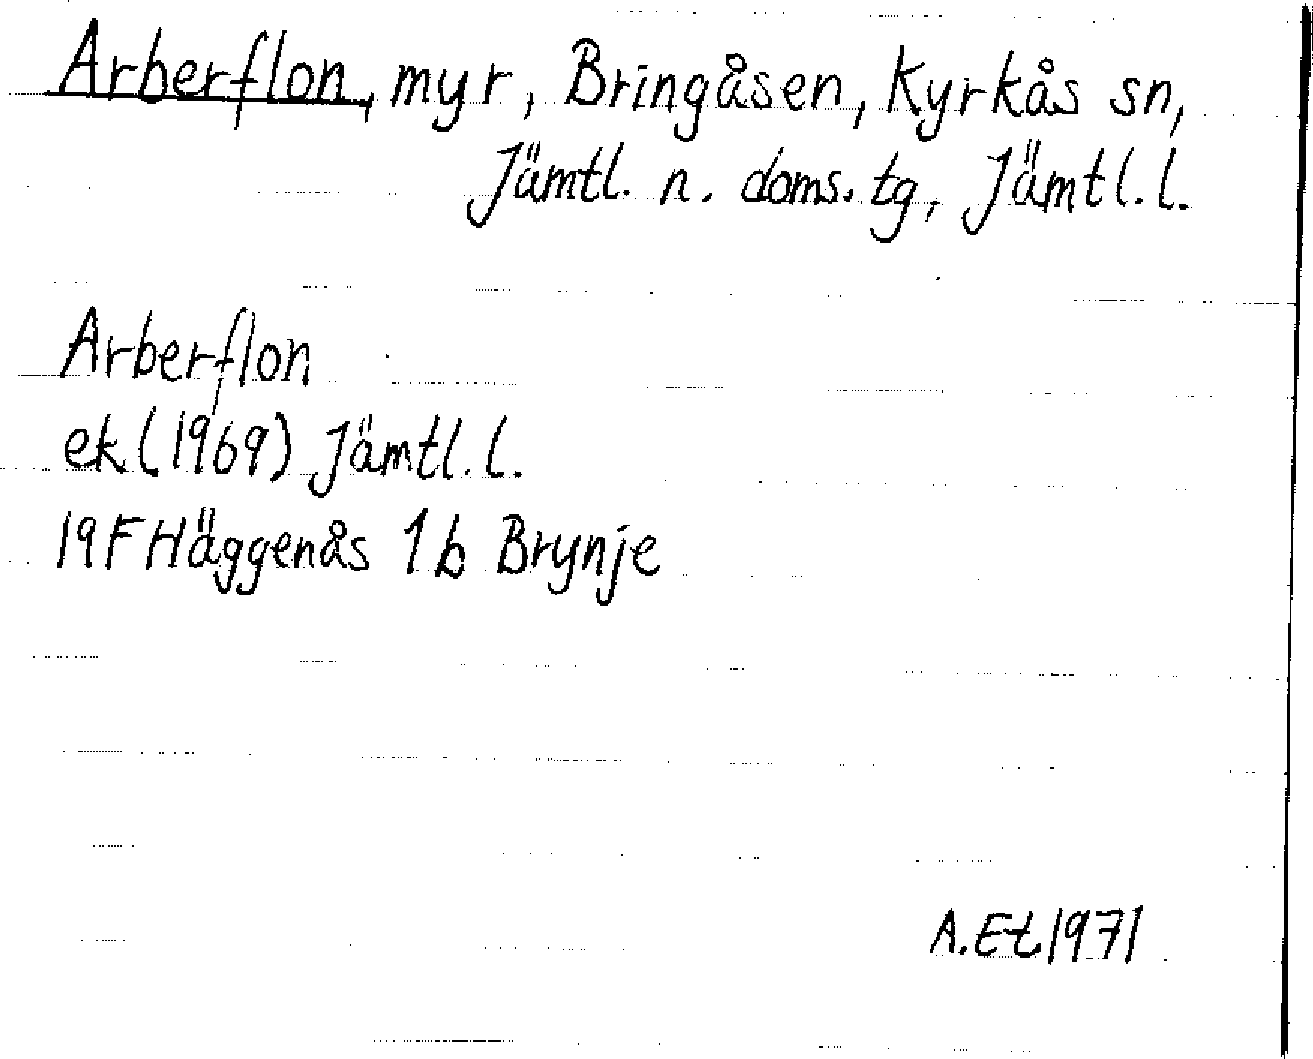 Arberflon, myr, Bringåsen, Kyrkås sn,
Jämtl. n. doms. tg, Jämtl. l.
Arberflon
ek (1969) Jämtl. l.
19F Häggenås 1b Brynje
A. Et 1971